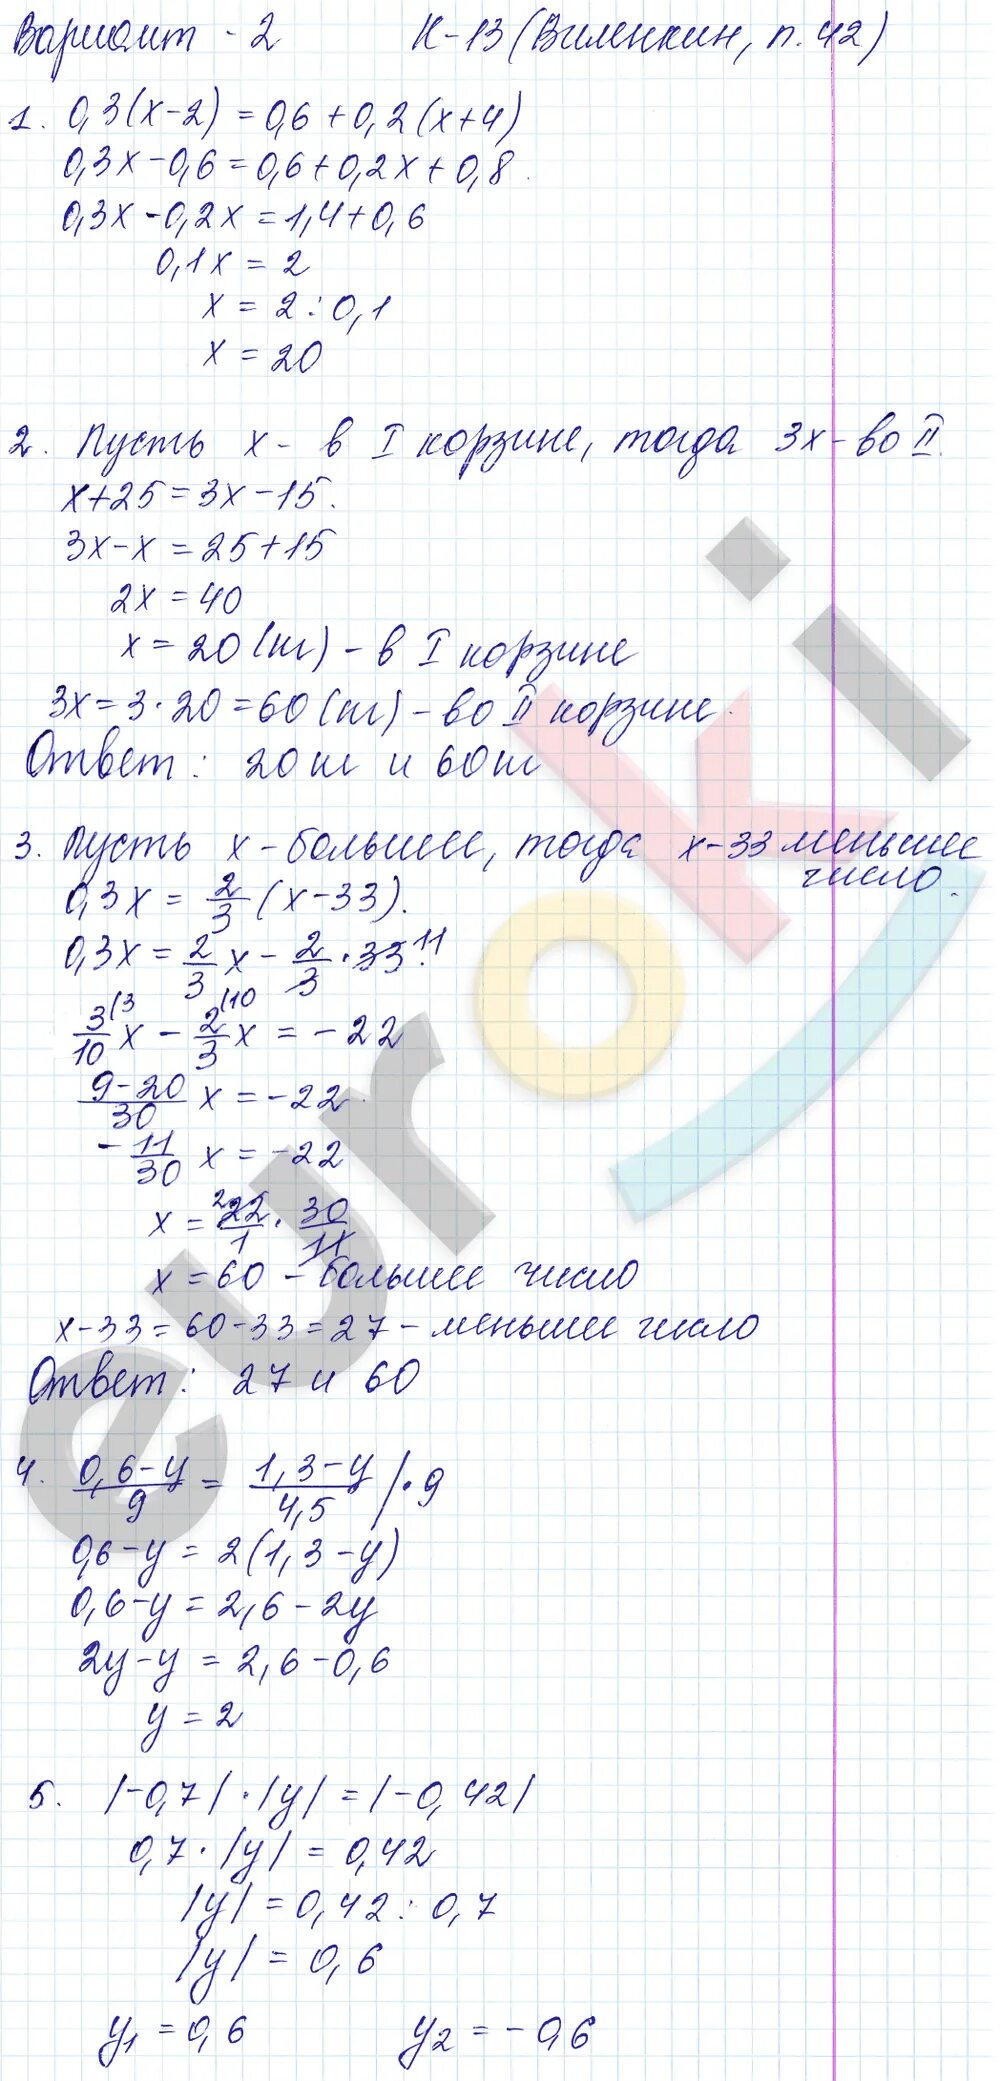 Вариант - 2 К-13 (Виленкин, п. 42)
1. 0,3(x-2) = 0,6 + 0,2(x+4)
0,3x - 0,6 = 0,6 + 0,2x + 0,8.
0,3x - 0,2x = 1,4 + 0,6
0,1x = 2
x = 2 : 0,1
x = 20
2. Пусть x - в I корзине, тогда 3x - во II.
x + 25 = 3x - 15.
3x - x = 25 + 15
2x = 40
x = 20 (кг) - в I корзине
3x = 3 · 20 = 60 (кг) - во II корзине.
Ответ: 20 кг и 60 кг
3. Пусть x - большее, тогда x - 33 меньшее
число.
0,3x = 2/3 (x - 33).
0,3x = 2/3 x - 2/3 · 33 11.
3/10 (3 x - 2/3 (10 x = - 22
9-20/30 x = - 22
- 11/30 x = - 22
x = 2 22/1 · 30/11
x = 60 - большее число
x - 33 = 60 - 33 = 27 - меньшее число
Ответ: 27 и 60
4. 0,6-y/9 = 1,3-y/4,5 | · 9
0,6 - y = 2(1,3 - y)
0,6 - y = 2,6 - 2y
2y - y = 2,6 - 0,6
y = 2
5. |-0,7| · |y| = |-0,42|
0,7 · |y| = 0,42
|y| = 0,42 : 0,7
|y| = 0,6
y₁ = 0,6 y₂ = - 0,6
euroki